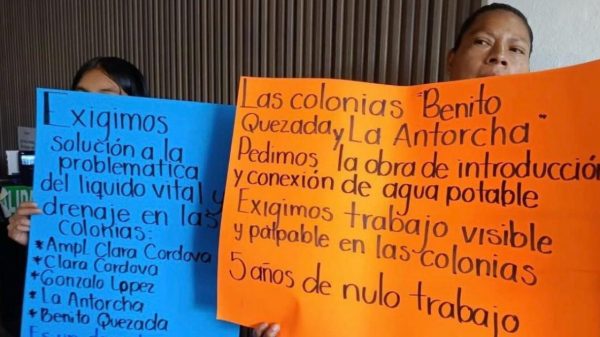 Exigimos
solución a la
problemática
del liquido vital y
drenaje en las
colonias:
*Ampl. Clara Cordova
*Clara Cordova
*Gonzalo Lopez
*La Antorcha
*Benito Quezada
Las colonias "Benito
Quezada y La Antorcha"
Pedimos la obra de introducción
y conexión de agua potable
Exigimos trabajo visible
y palpable en las colonias
5 años de nulo trabajo